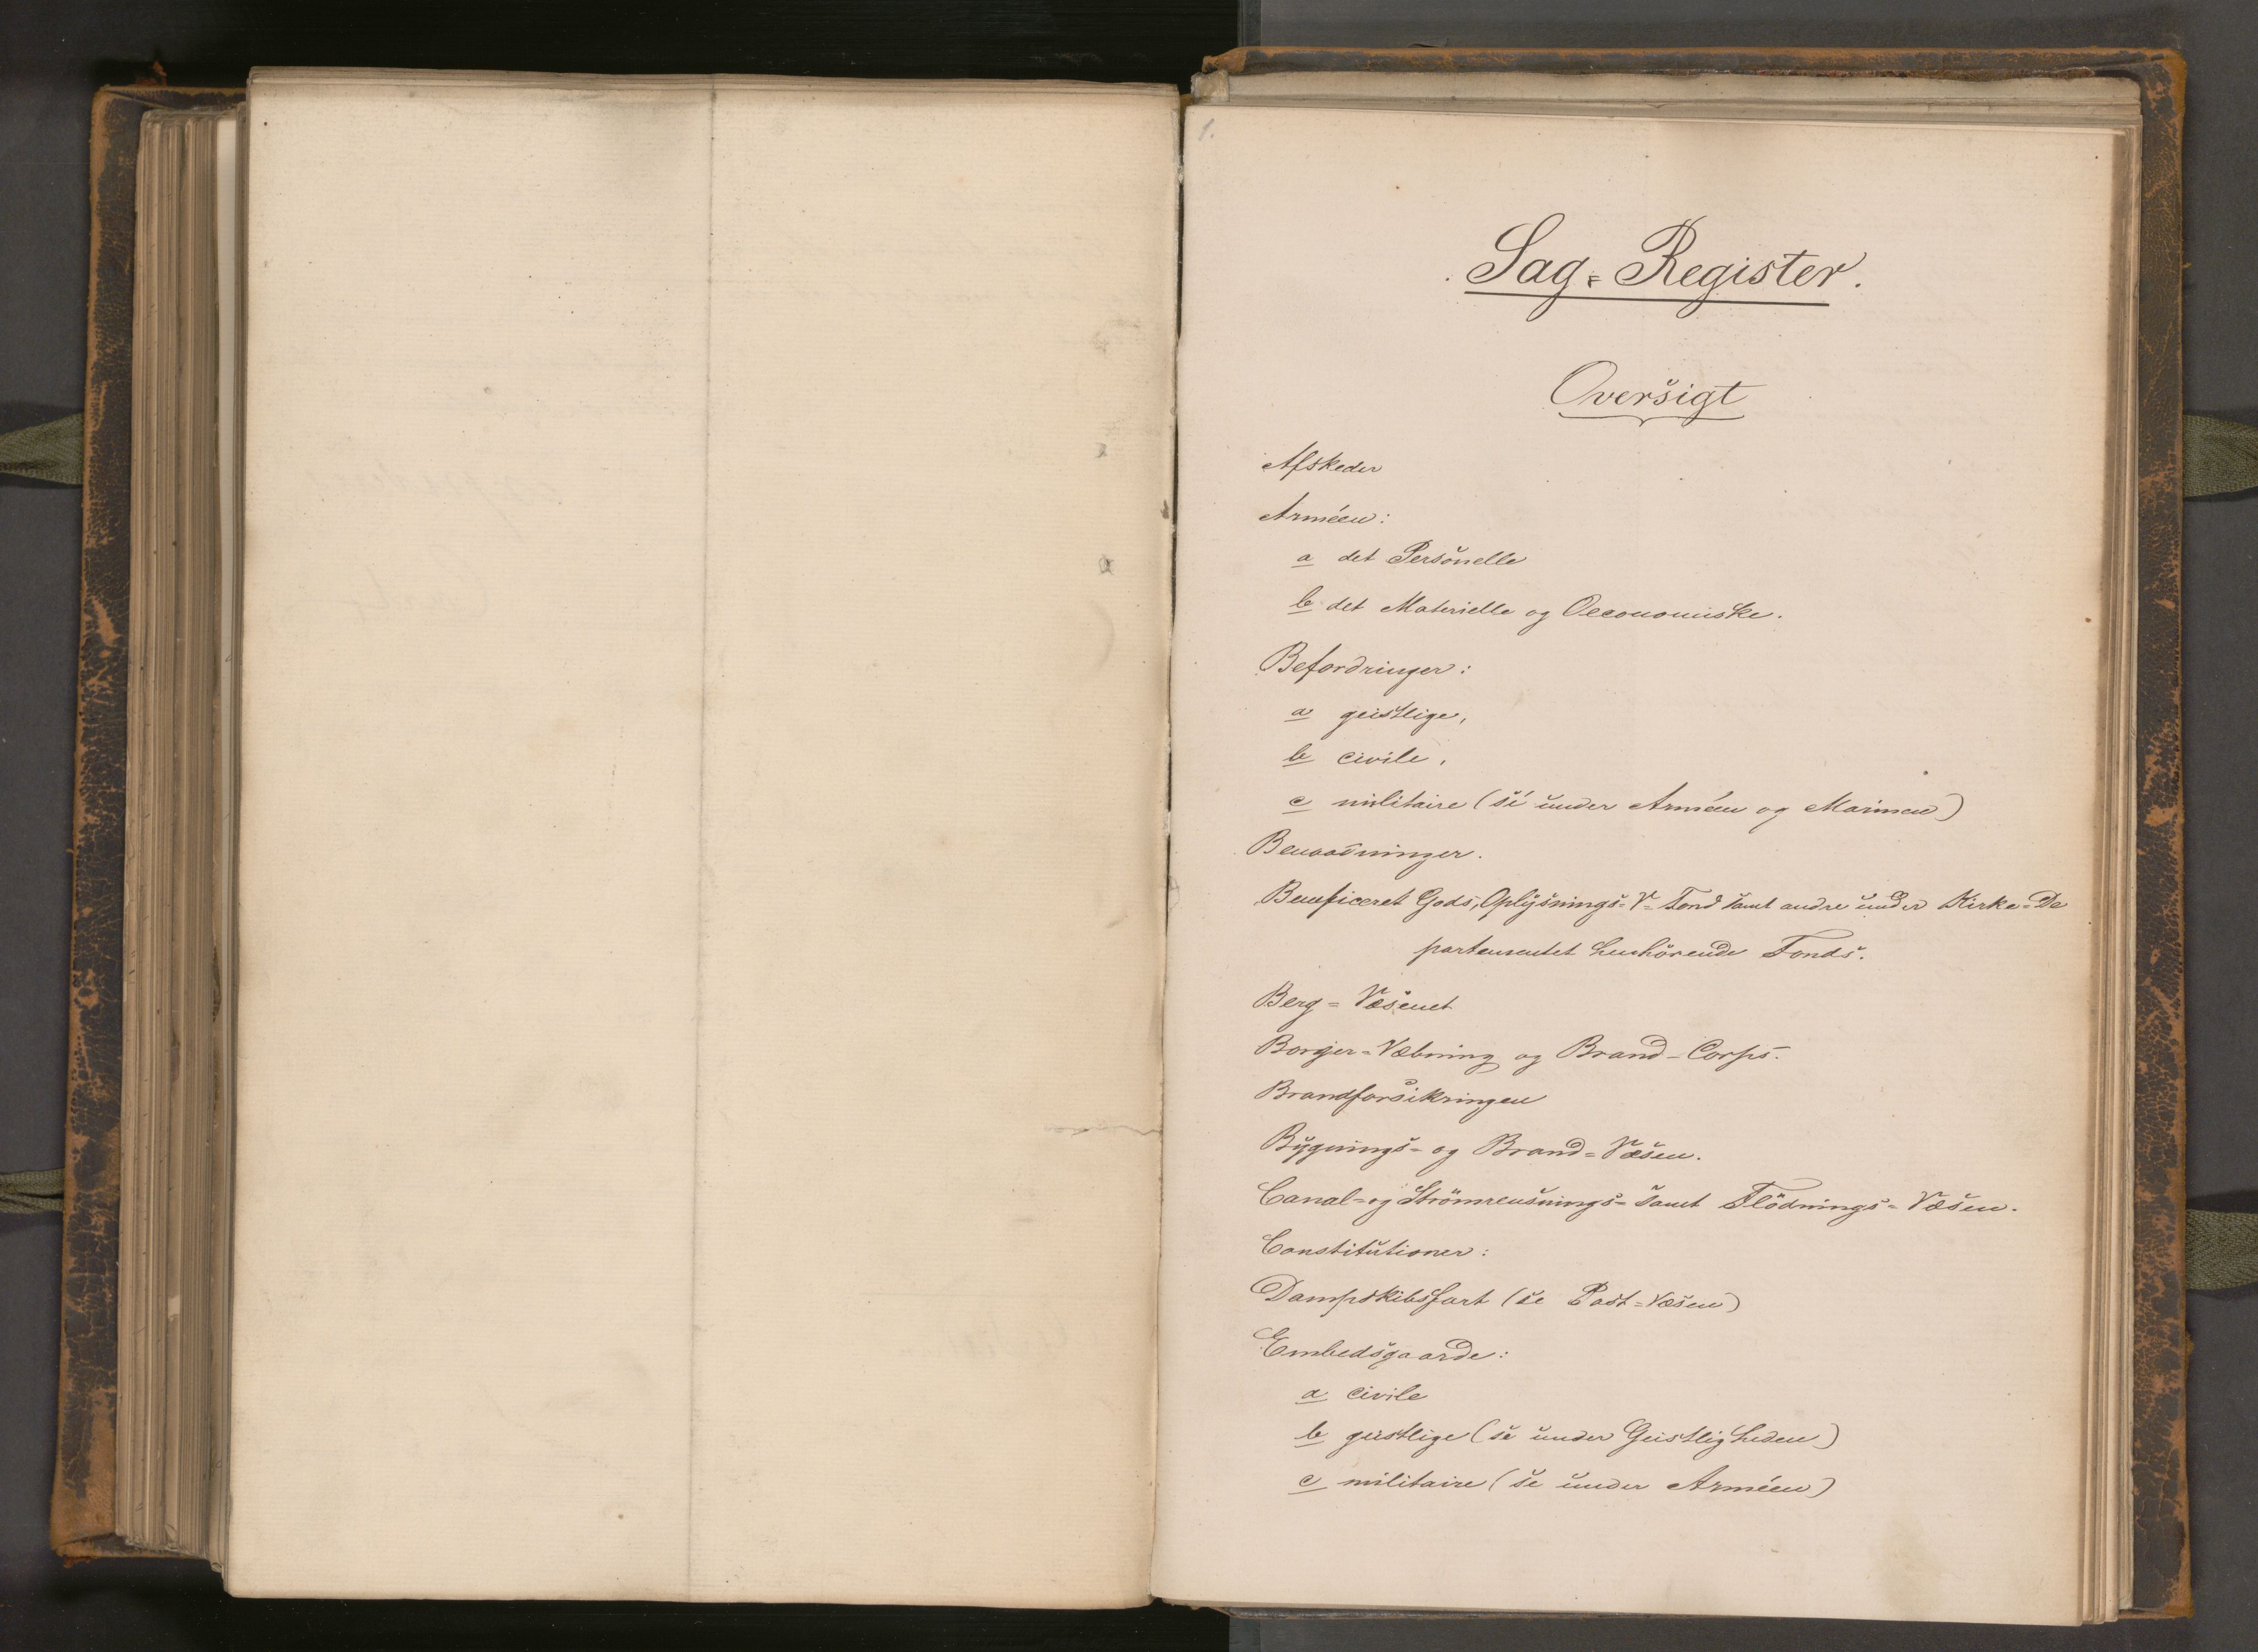 1.
Sag-Register.
Oversigt
Afskeder
Arméen:
a det Personelle
b det Materielle og Oeconomiske.
Befordringer:
a geistlige,
b civile,
c militaire (se under Arméen og Marinen)
Benaadninger.
Beneficeret Gods, Oplysnings-V-Fond samt andre under Kirke-De
partementet henhörende Fonds.
Berg-Væsenet
Borger-Væbning og Brand-Corps.
Brandforsikringen
Bygnings- og Brand-Væsen.
Canal- og Strömrensnings- samt Flödnings-Væsen.
Constitutioner:
Dampskibsfart (se Post-Væsen)
Embedsgaarde:
a civile
b geistlige (se under Geistligheden)
c militaire (se under Arméen)